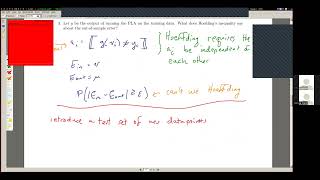 3. Let g be the output of running the PLA on the training data. What does Hoeffding's inequality say
about the out-of-sample error?
Hoeffding requires the
be independent of
each other
E_in = ν
E_out = μ
P(|E_in - E_out| ≥ ε) ← can't use Hoeffding
introduce a test set of new datapoints